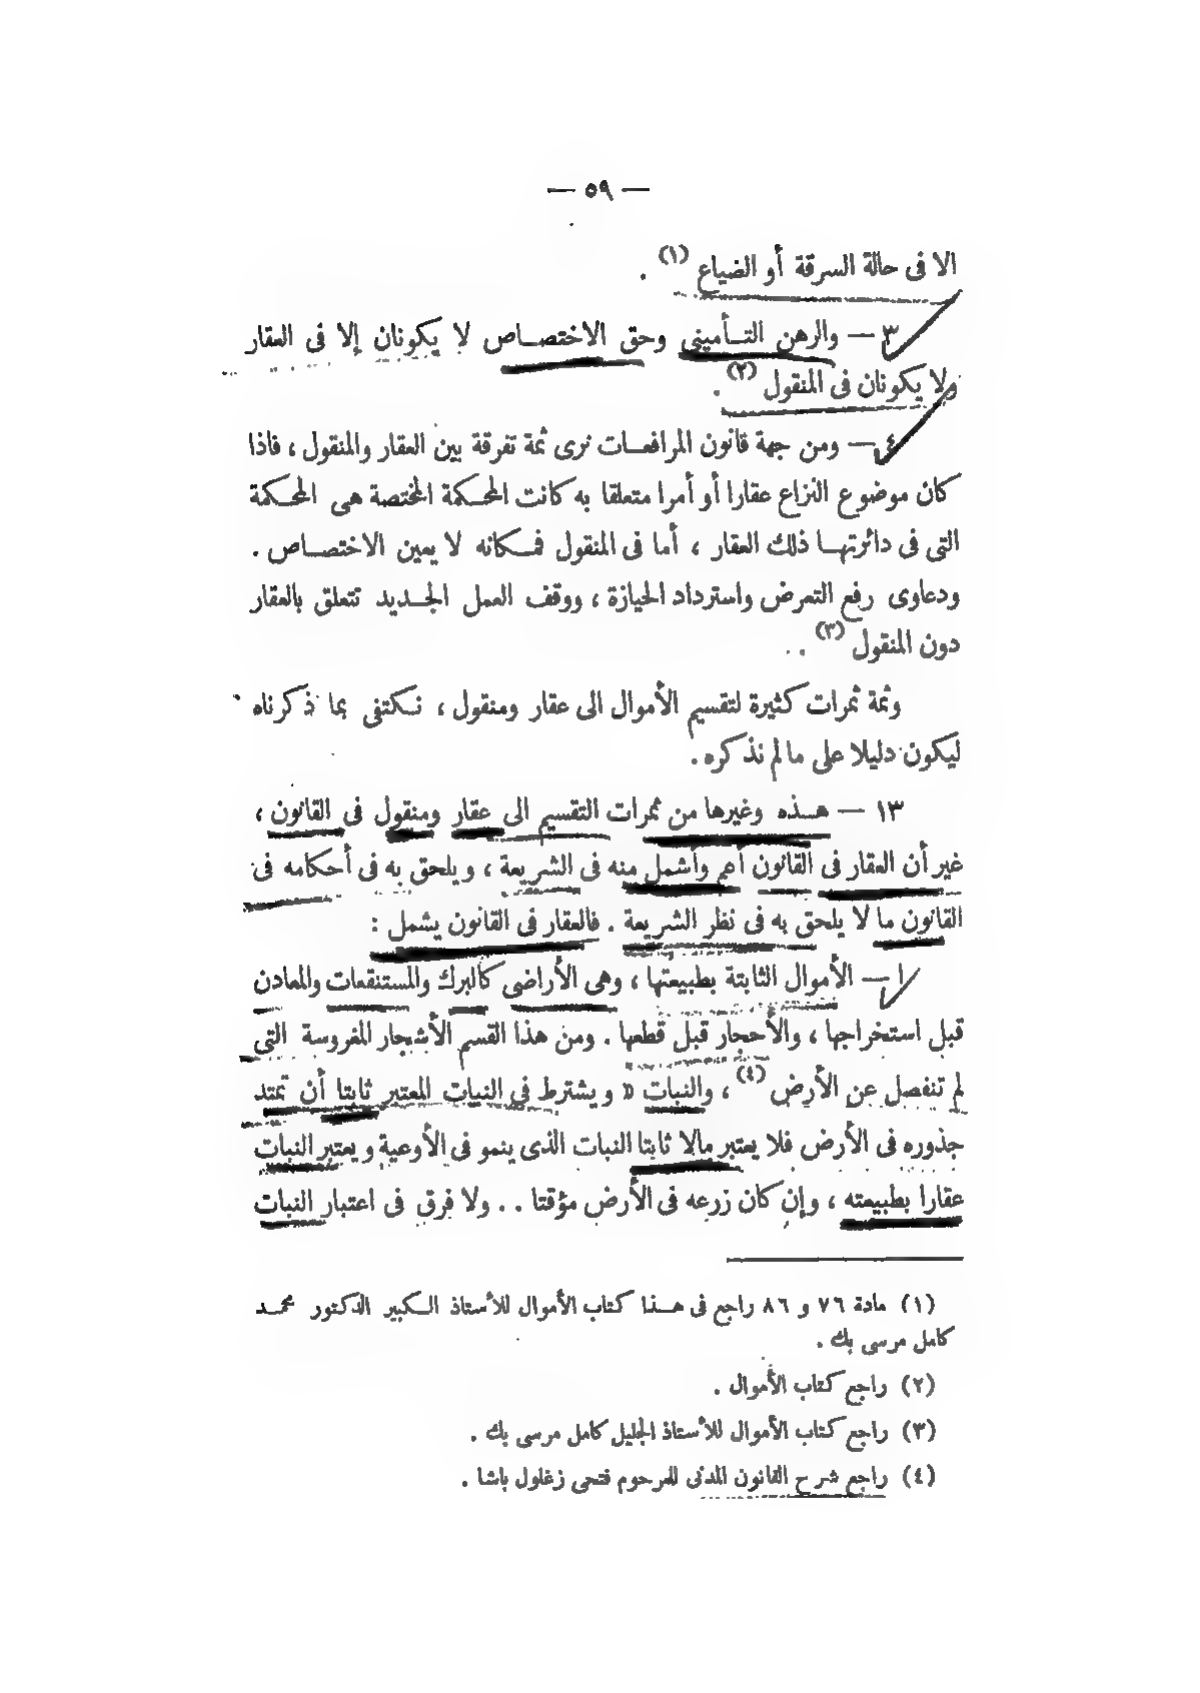 — ٥٩ —
الا فى حالة السرقة أو الضياع (١) .
٣ — والرهن التـأمينى وحق الاختصـاص لا يكونان إلا فى العقار
ولا يكونان فى المنقول (٢) .
٤ — ومن جهة قانون المرافعـات نرى ثمة تفرقة بين العقار والمنقول ، فاذا
كان موضوع النزاع عقارا أو أمرا متعلقا به كانت المحـكمة المختصة هى المحـكمة
التى فى دائرتهـا ذلك العقار ، أما فى المنقول فمـكانه لا يعين الاختصـاص .
ودعاوى رفع التعرض واسترداد الحيازة ، ووقف العمل الجـديد تتعلق بالعقار
دون المنقول (٣) . .
وثمة ثمرات كثيرة لتقسيم الأموال الى عقار ومنقول ، نـكتفى بما ذكرناه
ليكون دليلا على ما لم نذكره .
١٣ — هـذه وغيرها من ثمرات التقسيم الى عقار ومنقول فى القانون ،
غير أن العقار فى القانون أعم وأشمل منه فى الشريعة ، ويلحق به فى أحكامه فى
القانون ما لا يلحق به فى نظر الشريعة . فالعقار فى القانون يشمل :
١ — الأموال الثابتة بطبيعتها ، وهى الأراضى كالبرك والمستنقعات والمعادن
قبل استخراجها ، والأحجار قبل قطعها . ومن هذا القسم الأشجار المغروسة التى
لم تنفصل عن الأرض (٤) ، والنبات « ويشترط فى النبات المعتبر ثابتا أن تمتد
جذوره فى الأرض فلا يعتبر مالا ثابتا النبات الذى ينمو فى الأوعية ويعتبر النبات
عقارا بطبيعته ، وإن كان زرعه فى الأرض مؤقتا . . ولا فرق فى اعتبار النبات
(١) مادة ٧٦ و ٨٦ راجع فى هـذا كتاب الأموال للأستاذ الـكبير الدكتور محمـد
كامل مرسى بك .
(٢) راجع كتاب الأموال .
(٣) راجع كتاب الأموال للأستاذ الجليل كامل مرسى بك .
(٤) راجع شرح القانون المدنى للمرحوم فتحى زغلول باشا .